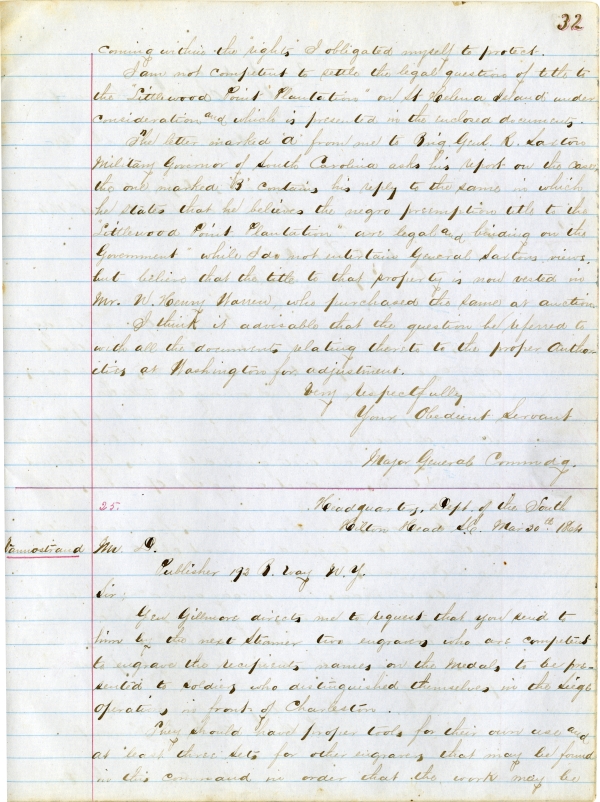 32
coming within the "rights" I obligated myself to protect.
I am not competent to settle the legal question of title to
the "Littlewood Point Plantation" on St Helena Island under
consideration and which is presented in the enclosed documents.
The letter marked "A" from me to Brig Genl R. Saxton
Military Governor of South Carolina asks his report on the case,
the one marked "B" contains his reply to the same in which
he states that he believes the negro preemption title to the
"Littlewood Point Plantation" are legal and binding on the
Government" while I do not entertain General Saxtons views,
but believe that the title to that property is now vested in
Mr. W. Henry Warren, who purchased the same at auction
I think it advisable that the question be referred to
with all the documents relating thereto to the proper Author-
ities at Washington for adjustment.
Very Respectfully
Your Obedient Servant
Major General Commndg.
25.
Headquarters, Dept. of the South
Hilton Head S.C. Mar 30th 1864
Vannostrand
Mr. D.
Publisher 192 B. Way N.Y.
Sir;
Gen Gillmore directs me to request that you send to
him by the next Steamer two engravers who are competent
to engrave the recipients names on the Medals to be pre-
sented to soldiers who distinguished themselves in the siege
operations in front of Charleston.
They should have proper tools for their own use and
at least three sets for other engravers that may be found
in this command in order that the work may be